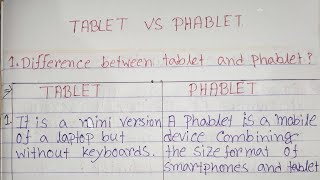 TABLET VS PHABLET
1. Difference between tablet and phablet?
→ TABLET PHABLET
1 It is a mini version A Phablet is a mobile
of a laptop but device combining
without keyboards. the size format of
smartphones and tablet